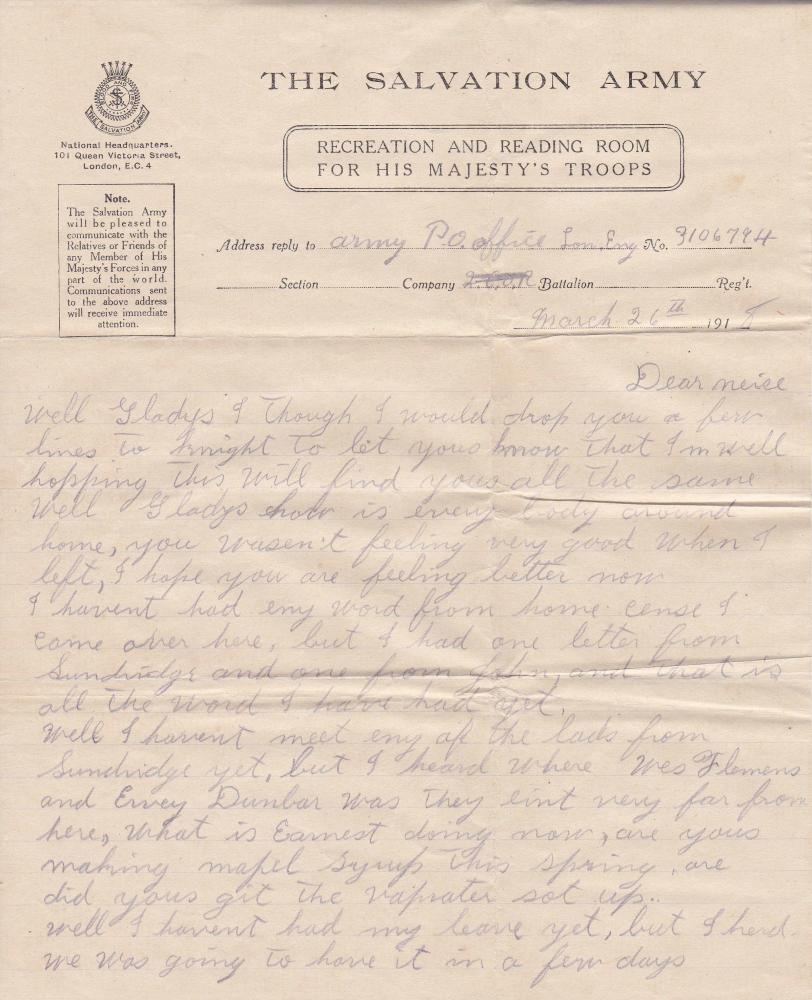 THE SALVATION ARMY
BLOOD AND FIRE
THE SALVATION ARMY
National Headquarters.
101 Queen Victoria Street,
London, E.C. 4
RECREATION AND READING ROOM
FOR HIS MAJESTY'S TROOPS
Note.
The Salvation Army
will be pleased to
communicate with the
Relatives or Friends of
any Member of His
Majesty's Forces in any
part of the world.
Communications sent
to the above address
will receive immediate
attention.
Address reply to army P.O. office Lon, Eng No. 3106794
Section Company Battalion Reg't.
March 26th 191
Dear neise
Well Gladys I Though I would drop you a few
lines to knight to let yous know that I m well
hopping this will find yous all the same
Well Gladys how is every body around
home, you wasen't feeling very good when I
left, I hope you are feeling better now
I havent had eny word from home cense I
come over here, but I had one letter from
Sundridge and one from John, and that is
all the word I have had yet.
Well I havent meet eny of the lads from
Sundridge yet, but I heard where Wes Flemens
and Ervey Dunbar was they eint very far from
here, What is Earnest doing now, are yous
making mapel syrup this spring, are
did yous git the vaprater sot up..
Well I havent had my leave yet, but I herd
we was going to have it in a few days